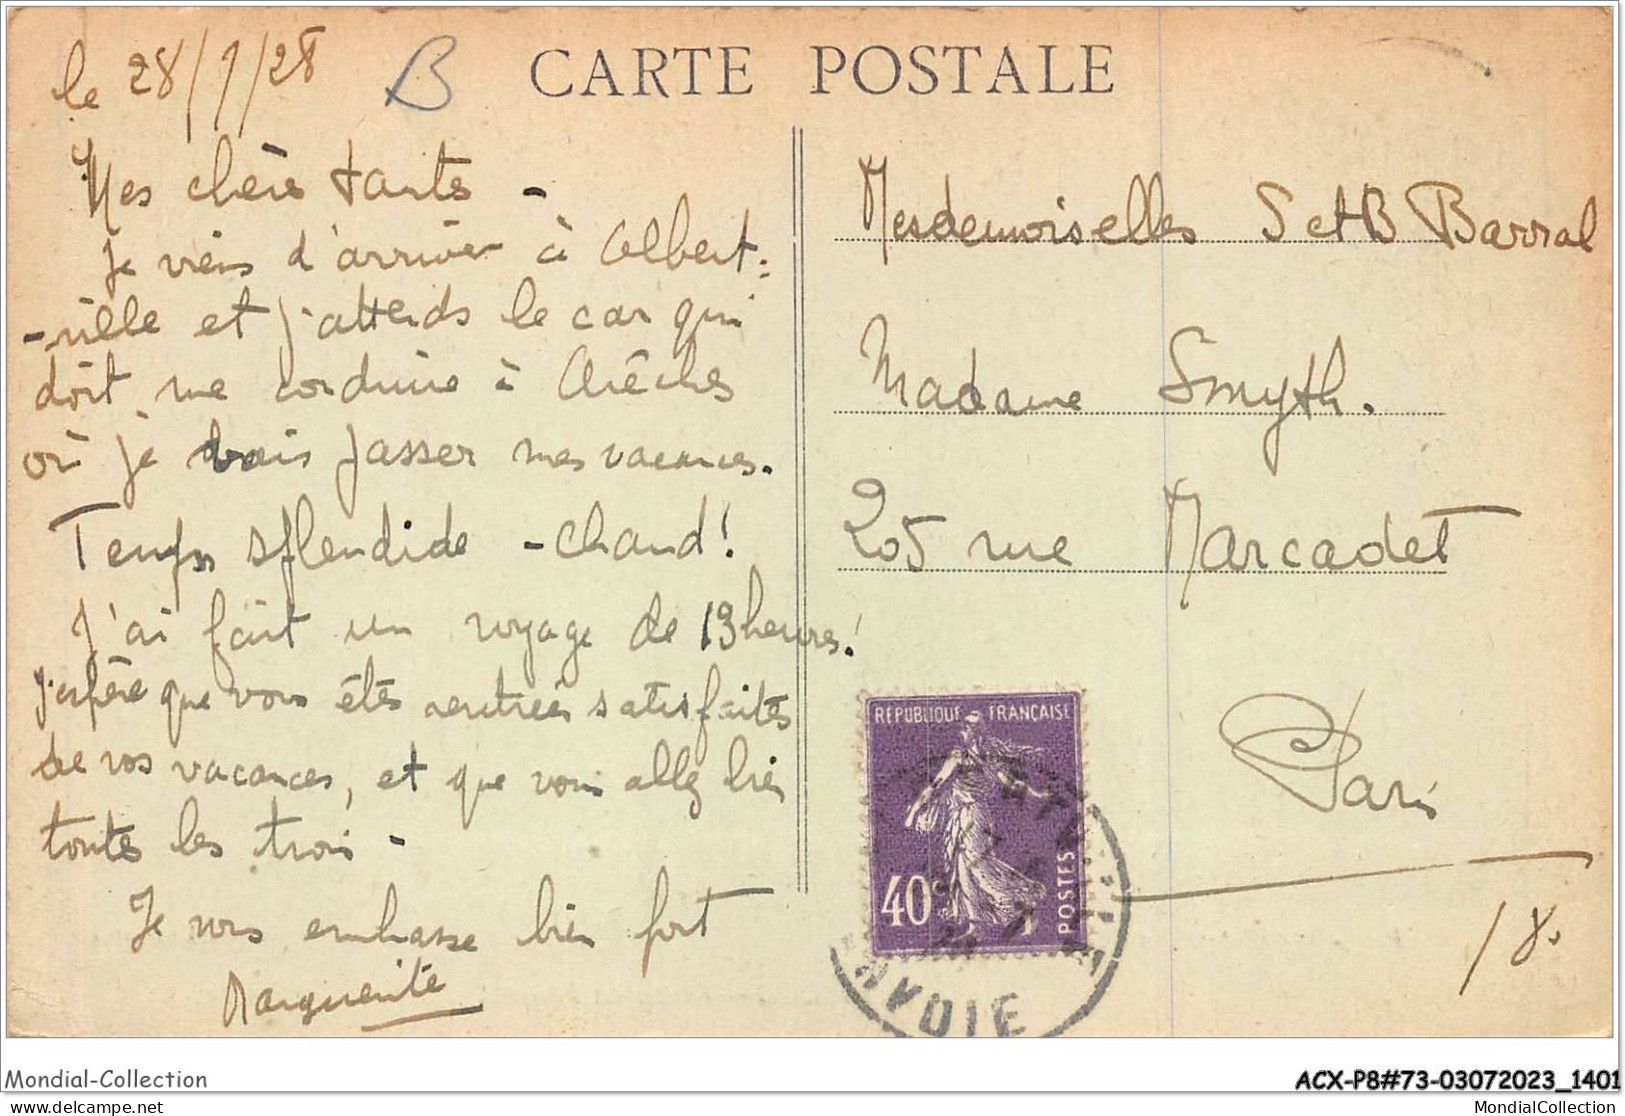 le 28/7/28
B
CARTE POSTALE
Mes chère tantes -
Je viens d'arriver à Albert-
-ville et j'attends le car qui
doit me conduire à Arêches
où je vais passer mes vacances.
Temps splendide - chaud!
J'ai fait un voyage de 13 heures!
J'espère que vous êtes rentrées satisfaites
de vos vacances, et que vous allez bien
toutes les trois -
Je vous embrasse bien fort
Marguerite
Mesdemoiselles S et B Barral
Madame Smyth.
205 rue Marcadet
Paris
18.
REPUBLIQUE FRANÇAISE
40c
POSTES
SAVOIE
Mondial-Collection
delcampe.net
ACX-P8#73-03072023_1401
MondialCollection